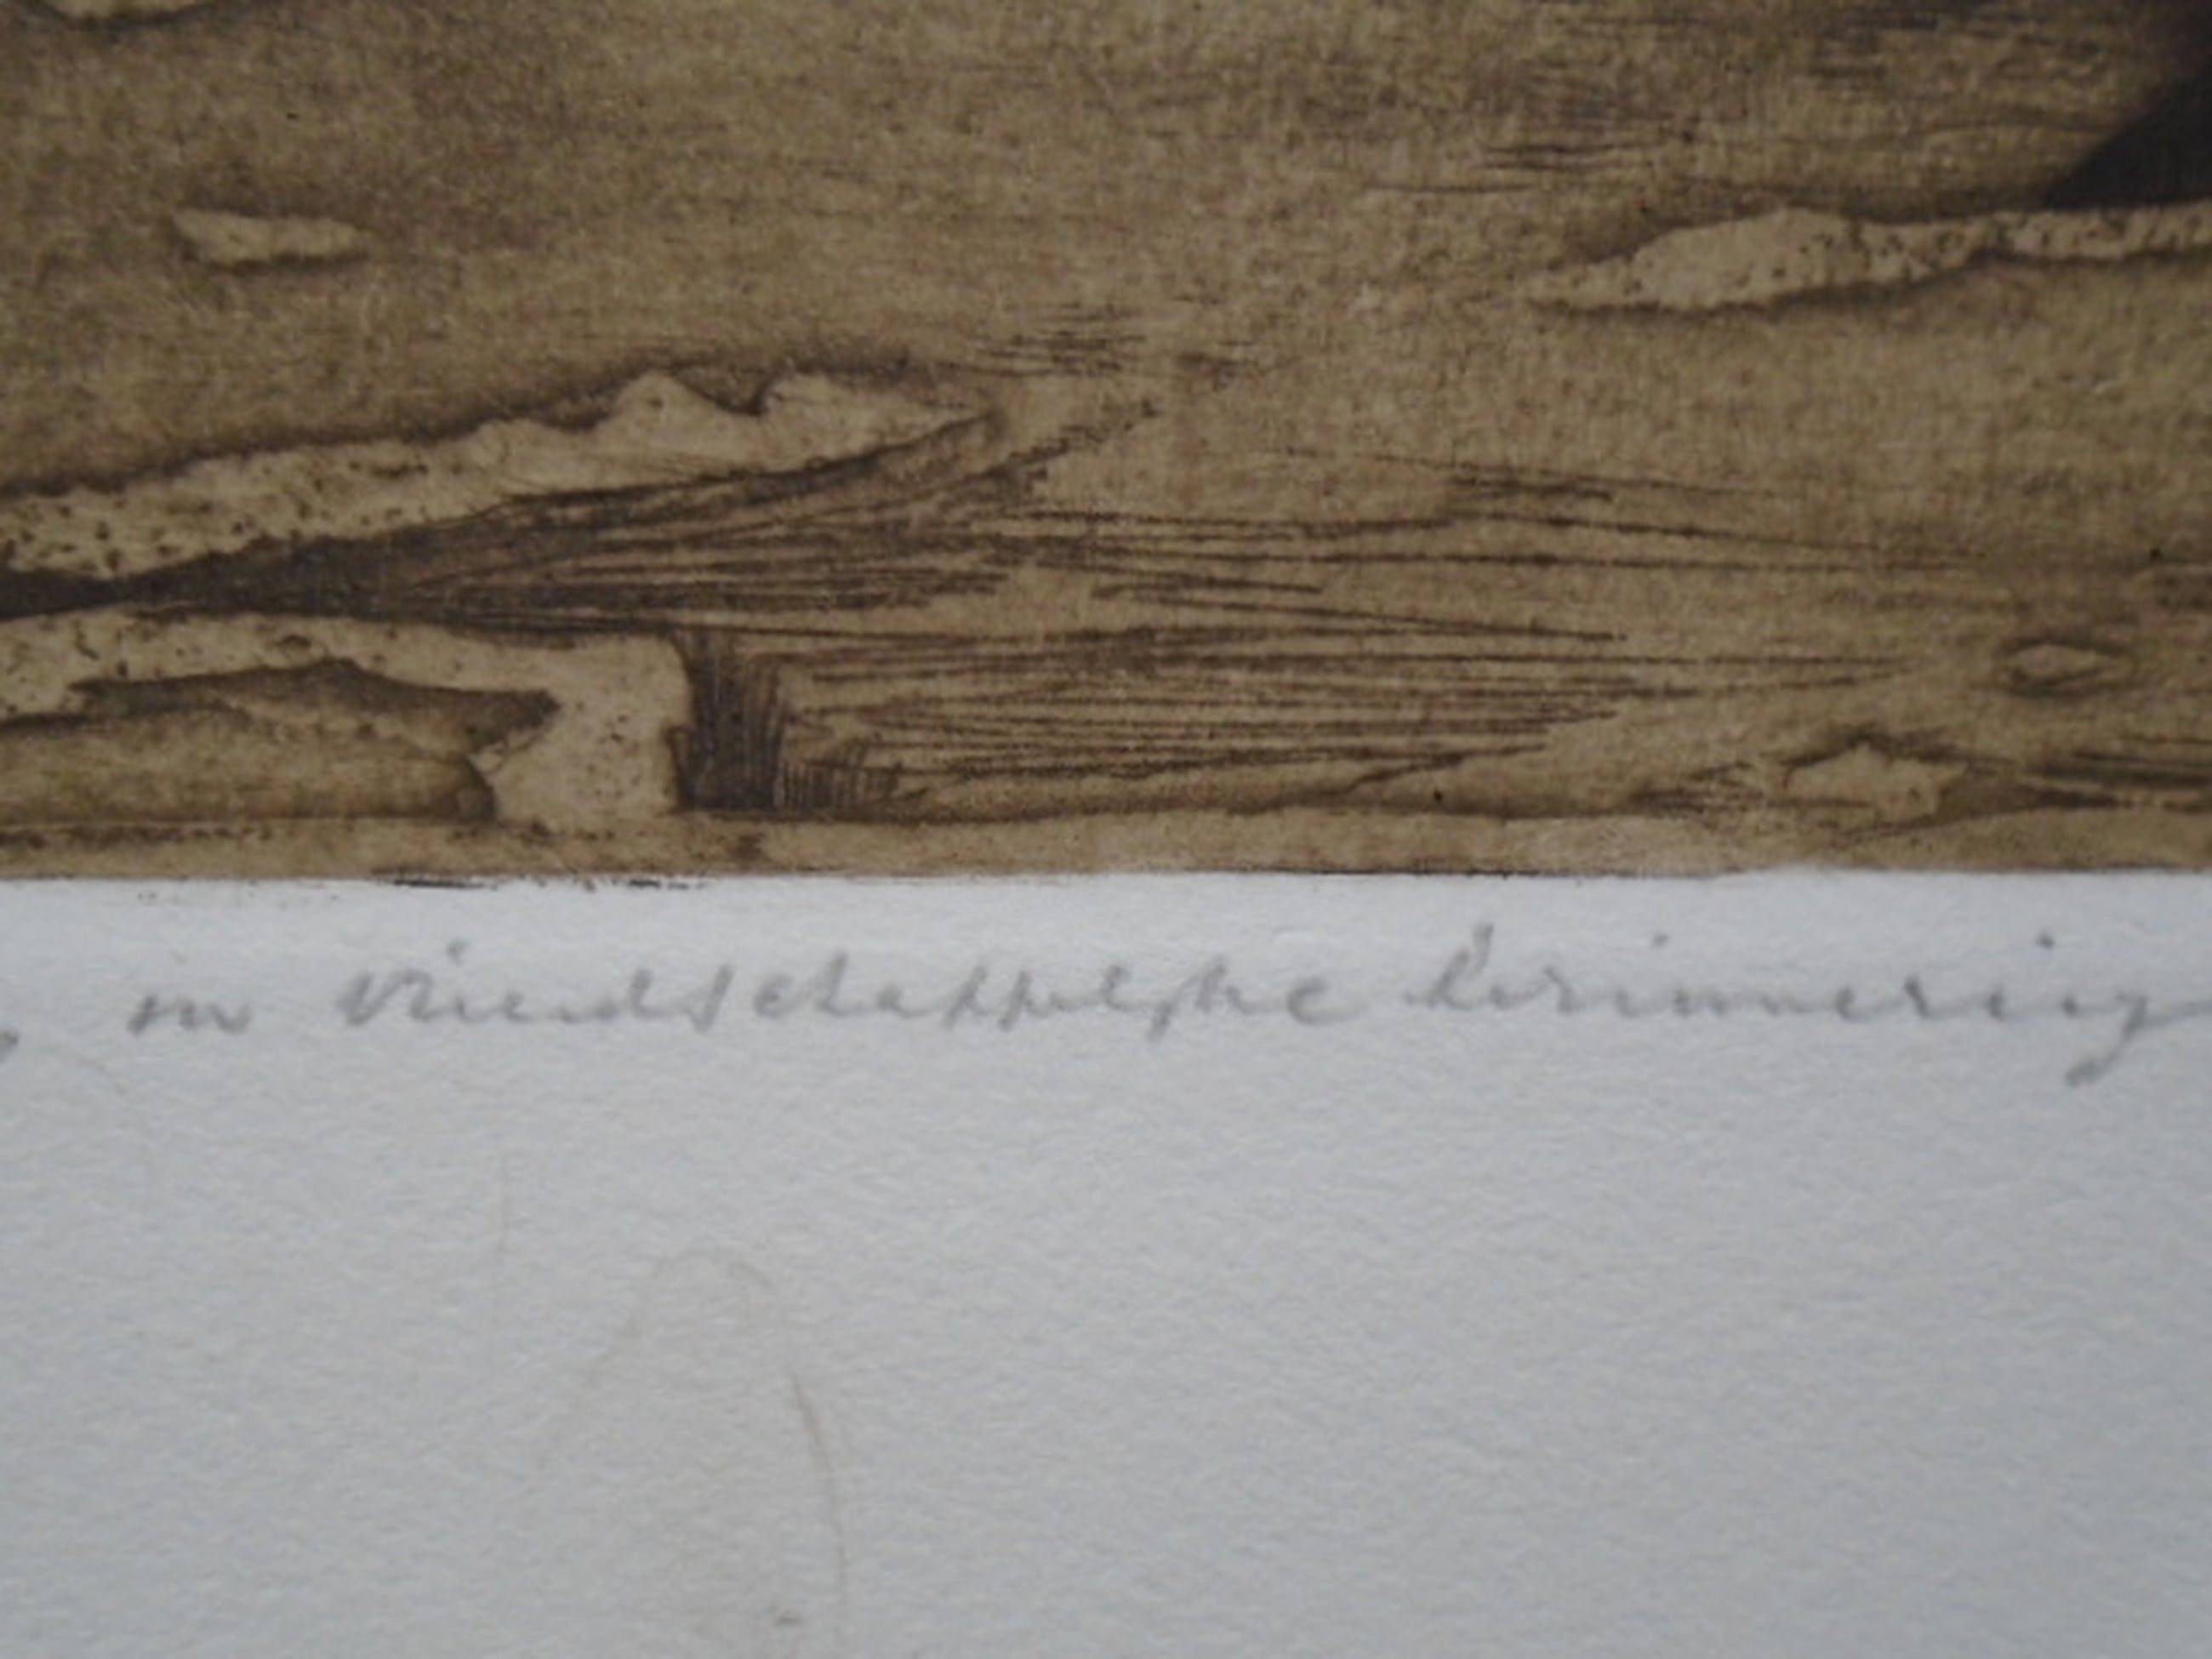 in vriendschappelijke herinnering